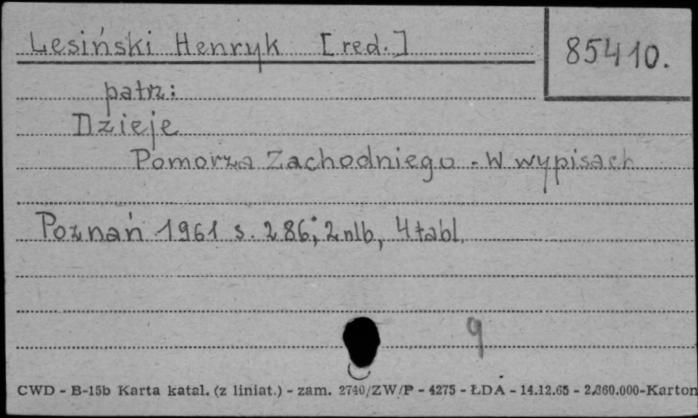 Lesiński Henryk [red.]
85410.
patrz:
Dzieje
Pomorza Zachodniego - W wypisach
Poznań 1961 s. 286; 2nlb, 4 tabl.
9
CWD - B-15b Karta katal. (z liniat.) - zam. 2740/ZW/P - 4275 - ŁDA - 14.12.65 - 2.860.000-Karton